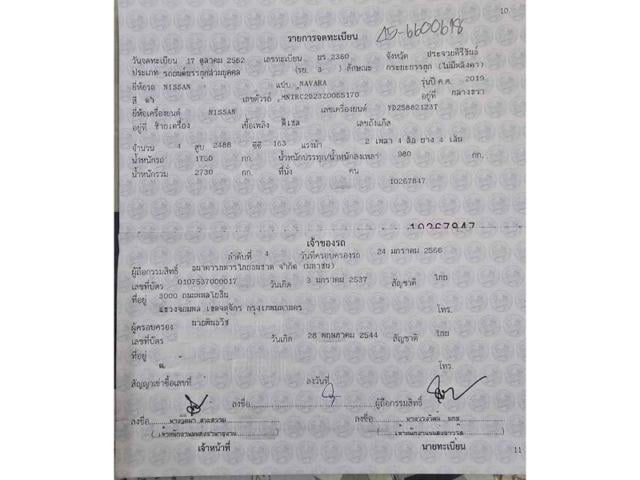 10
รายการจดทะเบียน AD-6600618
วันจดทะเบียน 17 ตุลาคม 2562 เลขทะเบียน บร 2360 จังหวัด ประจวบคีรีขันธ์
ประเภท รถยนต์บรรทุกส่วนบุคคล (รย. 3 ) ลักษณะ กระบะบรรทุก (ไม่มีหลังคา)
ยี่ห้อรถ NISSAN แบบ NAVARA รุ่นปี ค.ศ. 2019
สี ดำ เลขตัวรถ อยู่ที่ กลางขวา
ยี่ห้อเครื่องยนต์ NISSAN เลขเครื่องยนต์ YD25882123T
อยู่ที่ ซ้ายเครื่อง เชื้อเพลิง ดีเซล เลขถังแก๊ส
จำนวน 4 สูบ 2488 ซีซี 163 แรงม้า 2 เพลา 4 ล้อ ยาง 4 เส้น
น้ำหนักรถ กก. น้ำหนักบรรทุก/น้ำหนักลงเพลา 980 กก.
น้ำหนักรวม 2730 กก. ที่นั่ง คน
10267847
10267847
เจ้าของรถ
ลำดับที่ 4 วันที่ครอบครองรถ 24 มกราคม 2566
ผู้ถือกรรมสิทธิ์ ธนาคารทหารไทยธนชาต จำกัด (มหาชน)
เลขที่บัตร 0107537000017 วันเกิด 3 มกราคม 2537 สัญชาติ ไทย
ที่อยู่ 3000 ถนนพหลโยธิน
แขวงจอมพล เขตจตุจักร กรุงเทพมหานคร โทร.
ผู้ครอบครอง
เลขที่บัตร วันเกิด 28 พฤษภาคม 2544 สัญชาติ ไทย
ที่อยู่
โทร
สัญญาเช่าซื้อเลขที่ ลงวันที่
ลงชื่อ ผู้ถือกรรมสิทธิ์
ลงชื่อ ลงชื่อ
เจ้าหน้าที่ นายทะเบียน
11